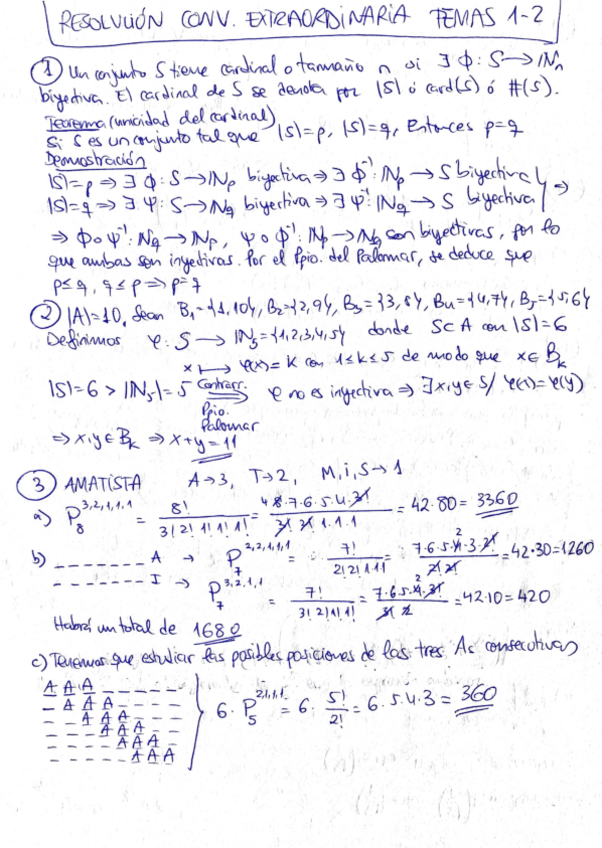 RESOLUCIÓN CONV. EXTRAORDINARIA TEMAS 1-2
① Un conjunto S tiene cardinal o tammaño n si ∃ Φ: S → ℕₙ
biyectiva. El cardinal de S se denota por |S| ó card(S) ó #(S).
Teorema (unicidad del cardinal)
Si S es un conjunto tal que |S|=p, |S|=q, entonces p=q
Demostración
|S|=p ⇒ ∃ Φ: S → ℕp biyectiva ⇒ ∃ Φ⁻¹: ℕp → S biyectiva } ⇒
|S|=q ⇒ ∃ Ψ: S → ℕq biyectiva ⇒ ∃ Ψ⁻¹: ℕq → S biyectiva
⇒ Φ∘Ψ⁻¹: ℕq → ℕp, Ψ∘Φ⁻¹: ℕp → ℕq son biyectivas, por lo
que ambas son inyectivas. Por el Ppio. del Palomar, se deduce que
p≤q, q≤p ⇒ p=q
② |A|=10. Sean B₁={1,10}, B₂={2,9}, B₃={3,8}, B₄={4,7}, B₅={5,6}
Definimos φ: S → ℕ₅={1,2,3,4,5} donde S⊂A con |S|=6
x ↦ φ(x)=k con 1≤k≤5 de modo que x∈Bk
|S|=6 > |ℕ₅|=5 Contrarr. ⇒ φ no es inyectiva ⇒ ∃x,y∈S / φ(x)=φ(y)
Ppio.
Palomar
⇒ x,y∈Bk ⇒ x+y=11
③ AMATISTA A→3, T→2, M,i,S→1
a) P₈^{3,2,1,1,1} = 8!/(3!2!1!1!1!) = 4·8·7·6·5·4·3!/(3!·2!·1·1·1) = 42·80 = 3360
b) _ _ _ _ _ _ _ A → P₇^{2,2,1,1,1} = 7!/(2!2!1!1!) = 7·6·5·4·3·2!/(2!2!) = 42·30=1260
_ _ _ _ _ _ _ I → P₇^{3,2,1,1} = 7!/(3!2!1!1!) = 7·6·5·4·3!/(3!2) = 42·10=420
Habrá un total de 1680
c) Tenemos que estudiar las posibles posiciones de las tres As consecutivas
A A A _ _ _ _ _
_ A A A _ _ _ _
_ _ A A A _ _ _
_ _ _ A A A _ _
_ _ _ _ A A A _
_ _ _ _ _ A A A
6·P₅^{2,1,1,1} = 6·5!/2! = 6·5·4·3 = 360